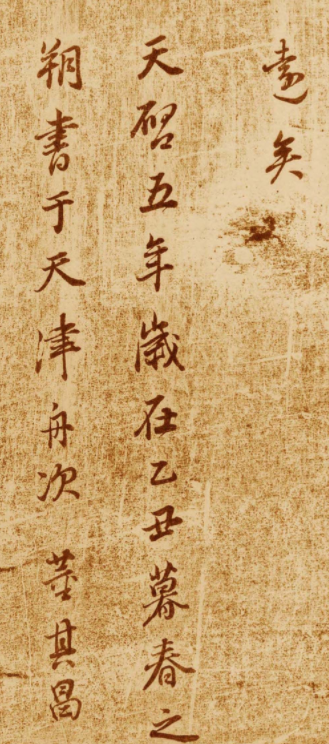 遠矣
天启五年歲在乙丑暮春之
朔書于天津舟次 董其昌